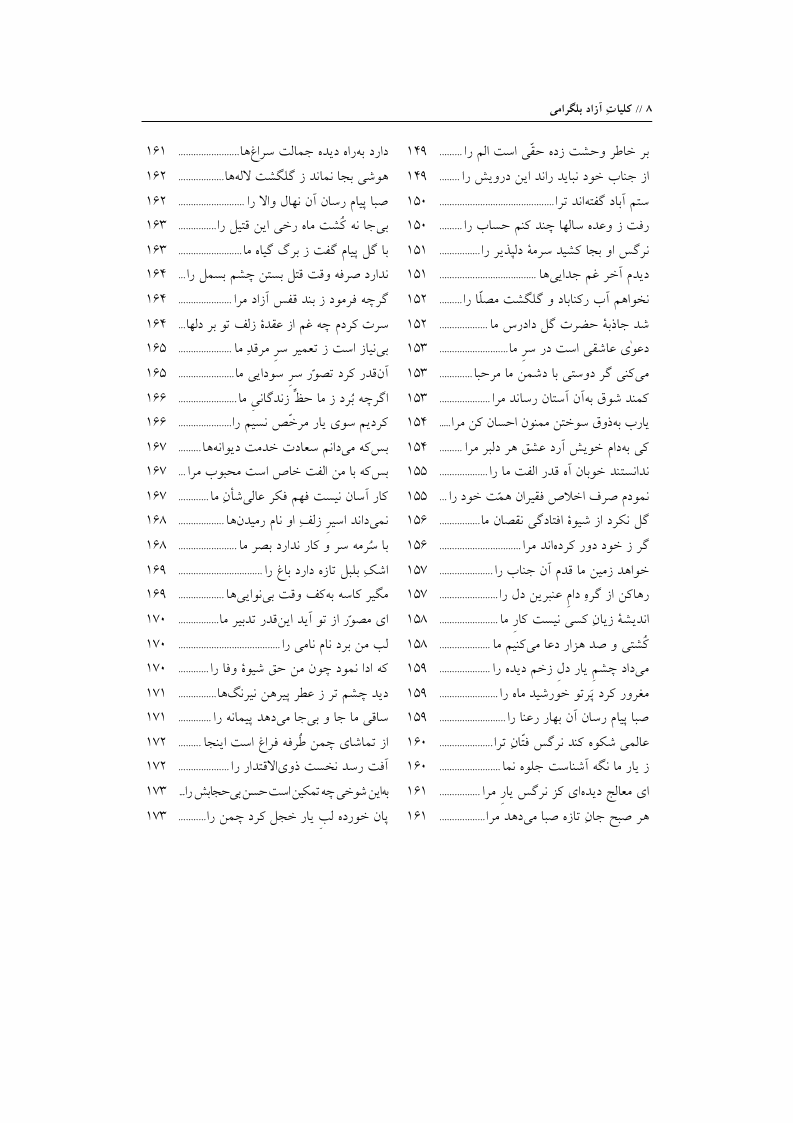 ۸ // کلیاتِ آزاد بلگرامی
بر خاطر وحشت زده حقّی است الم را ......... ۱۴۹
از جناب خود نباید راند این درویش را ........ ۱۴۹
ستم آباد گفته‌اند ترا ............................................. ۱۵۰
رفت ز وعده سالها چند کنم حساب را ......... ۱۵۰
نرگس او بجا کشید سرمهٔ دلپذیر را ................ ۱۵۱
دیدم آخر غم جدایی‌ها ...................................... ۱۵۱
نخواهم آب رکناباد و گلگشت مصلّا را ......... ۱۵۲
شد جاذبهٔ حضرت گل دادرس ما ................... ۱۵۲
دعویٰ عاشقی است در سرِ ما ........................... ۱۵۳
می‌کنی گر دوستی با دشمن ما مرحبا ............. ۱۵۳
کمند شوق به‌آن آستان رساند مرا .................... ۱۵۳
یارب به‌ذوق سوختن ممنون احسان کن مرا ..... ۱۵۴
کی به‌دام خویش آرد عشق هر دلبر مرا ......... ۱۵۴
ندانستند خوبان آه قدر الفت ما را ................... ۱۵۵
نمودم صرف اخلاص فقیران همّت خود را ... ۱۵۵
گل نکرد از شیوهٔ افتادگی نقصان ما ................ ۱۵۶
گر ز خود دور کرده‌اند مرا ................................ ۱۵۶
خواهد زمین ما قدم آن جناب را ..................... ۱۵۷
رهاکن از گرهِ دامِ عنبرین دل را ...................... ۱۵۷
اندیشهٔ زیانِ کسی نیست کارِ ما ....................... ۱۵۸
کُشتی و صد هزار دعا می‌کنیم ما .................... ۱۵۸
می‌داد چشمِ یار دلِ زخم دیده را .................... ۱۵۹
مغرور کرد پَرتو خورشید ماه را ....................... ۱۵۹
صبا پیام رسان آن بهار رعنا را .......................... ۱۵۹
عالمی شکوه کند نرگس فتّانِ ترا ..................... ۱۶۰
ز یار ما نگه آشناست جلوه نما ........................ ۱۶۰
ای معالج دیده‌ای کز نرگس یارِ مرا ................ ۱۶۱
هر صبح جانِ تازه صبا می‌دهد مرا .................. ۱۶۱
دارد به‌راه دیده جمالت سراغ‌ها ........................ ۱۶۱
هوشی بجا نماند ز گلگشت لاله‌ها .................. ۱۶۲
صبا پیام رسان آن نهال والا را .......................... ۱۶۲
بی‌جا نه کُشت ماه رخی این قتیل را ............... ۱۶۳
با گل پیام گفت ز برگ گیاه ما ......................... ۱۶۳
ندارد صرفه وقت قتل بستن چشم بسمل را ... ۱۶۴
گرچه فرمود ز بند قفس آزاد مرا ..................... ۱۶۴
سرت کردم چه غم از عقدهٔ زلف تو بر دلها ... ۱۶۴
بی‌نیاز است ز تعمیر سرِ مرقدِ ما ..................... ۱۶۵
آن‌قدر کرد تصوّر سرِ سودایی ما ...................... ۱۶۵
اگرچه بُرد ز ما حظِّ زندگانیِ ما ....................... ۱۶۶
کردیم سوی یار مرخّص نسیم را ..................... ۱۶۶
بس‌که می‌دانم سعادت خدمت دیوانه‌ها ......... ۱۶۷
بس‌که با من الفت خاص است محبوب مرا ... ۱۶۷
کار آسان نیست فهم فکر عالی‌شأنِ ما ............ ۱۶۷
نمی‌داند اسیرِ زلفِ او نام رمیدن‌ها .................. ۱۶۸
با سُرمه سر و کار ندارد بصر ما ....................... ۱۶۸
اشکِ بلبل تازه دارد باغ را ................................. ۱۶۹
مگیر کاسه به‌کف وقت بی‌نوایی‌ها ................... ۱۶۹
ای مصوّر از تو آید این‌قدر تدبیر ما ................. ۱۷۰
لب من برد نام نامی را ........................................ ۱۷۰
که ادا نمود چون من حق شیوهٔ وفا را ............ ۱۷۰
دید چشم تر ز عطر پیرهن نیرنگ‌ها ............... ۱۷۱
ساقی ما جا و بی‌جا می‌دهد پیمانه را ............. ۱۷۱
از تماشای چمن طُرفه فراغ است اینجا ......... ۱۷۲
آفت رسد نخست ذوی‌الاقتدار را .................... ۱۷۲
به‌این شوخی چه تمکین است حسن بی‌حجابش را .. ۱۷۳
پان خورده لبِ یار خجل کرد چمن را ........... ۱۷۳